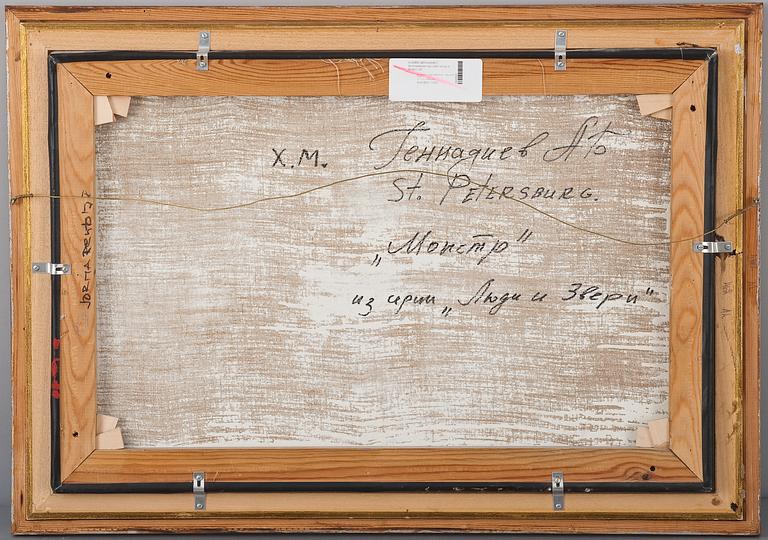 Х.М. Геннадиев АБ
St. PETERSBURG.
„Монстр"
из серии „Люди и Звери"